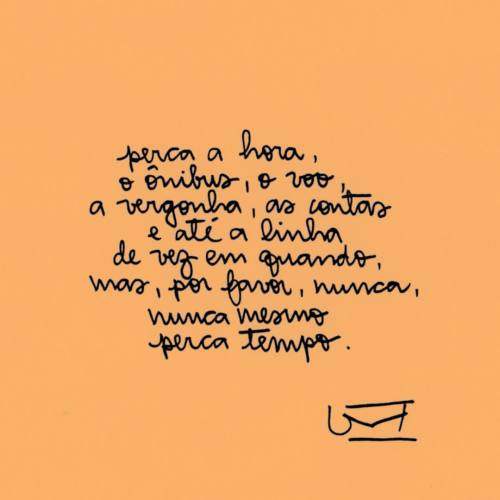 perca a hora,
o ônibus, o voo,
a vergonha, as contas
e até a linha
de vez em quando,
mas, por favor, nunca,
nunca mesmo
perca tempo.